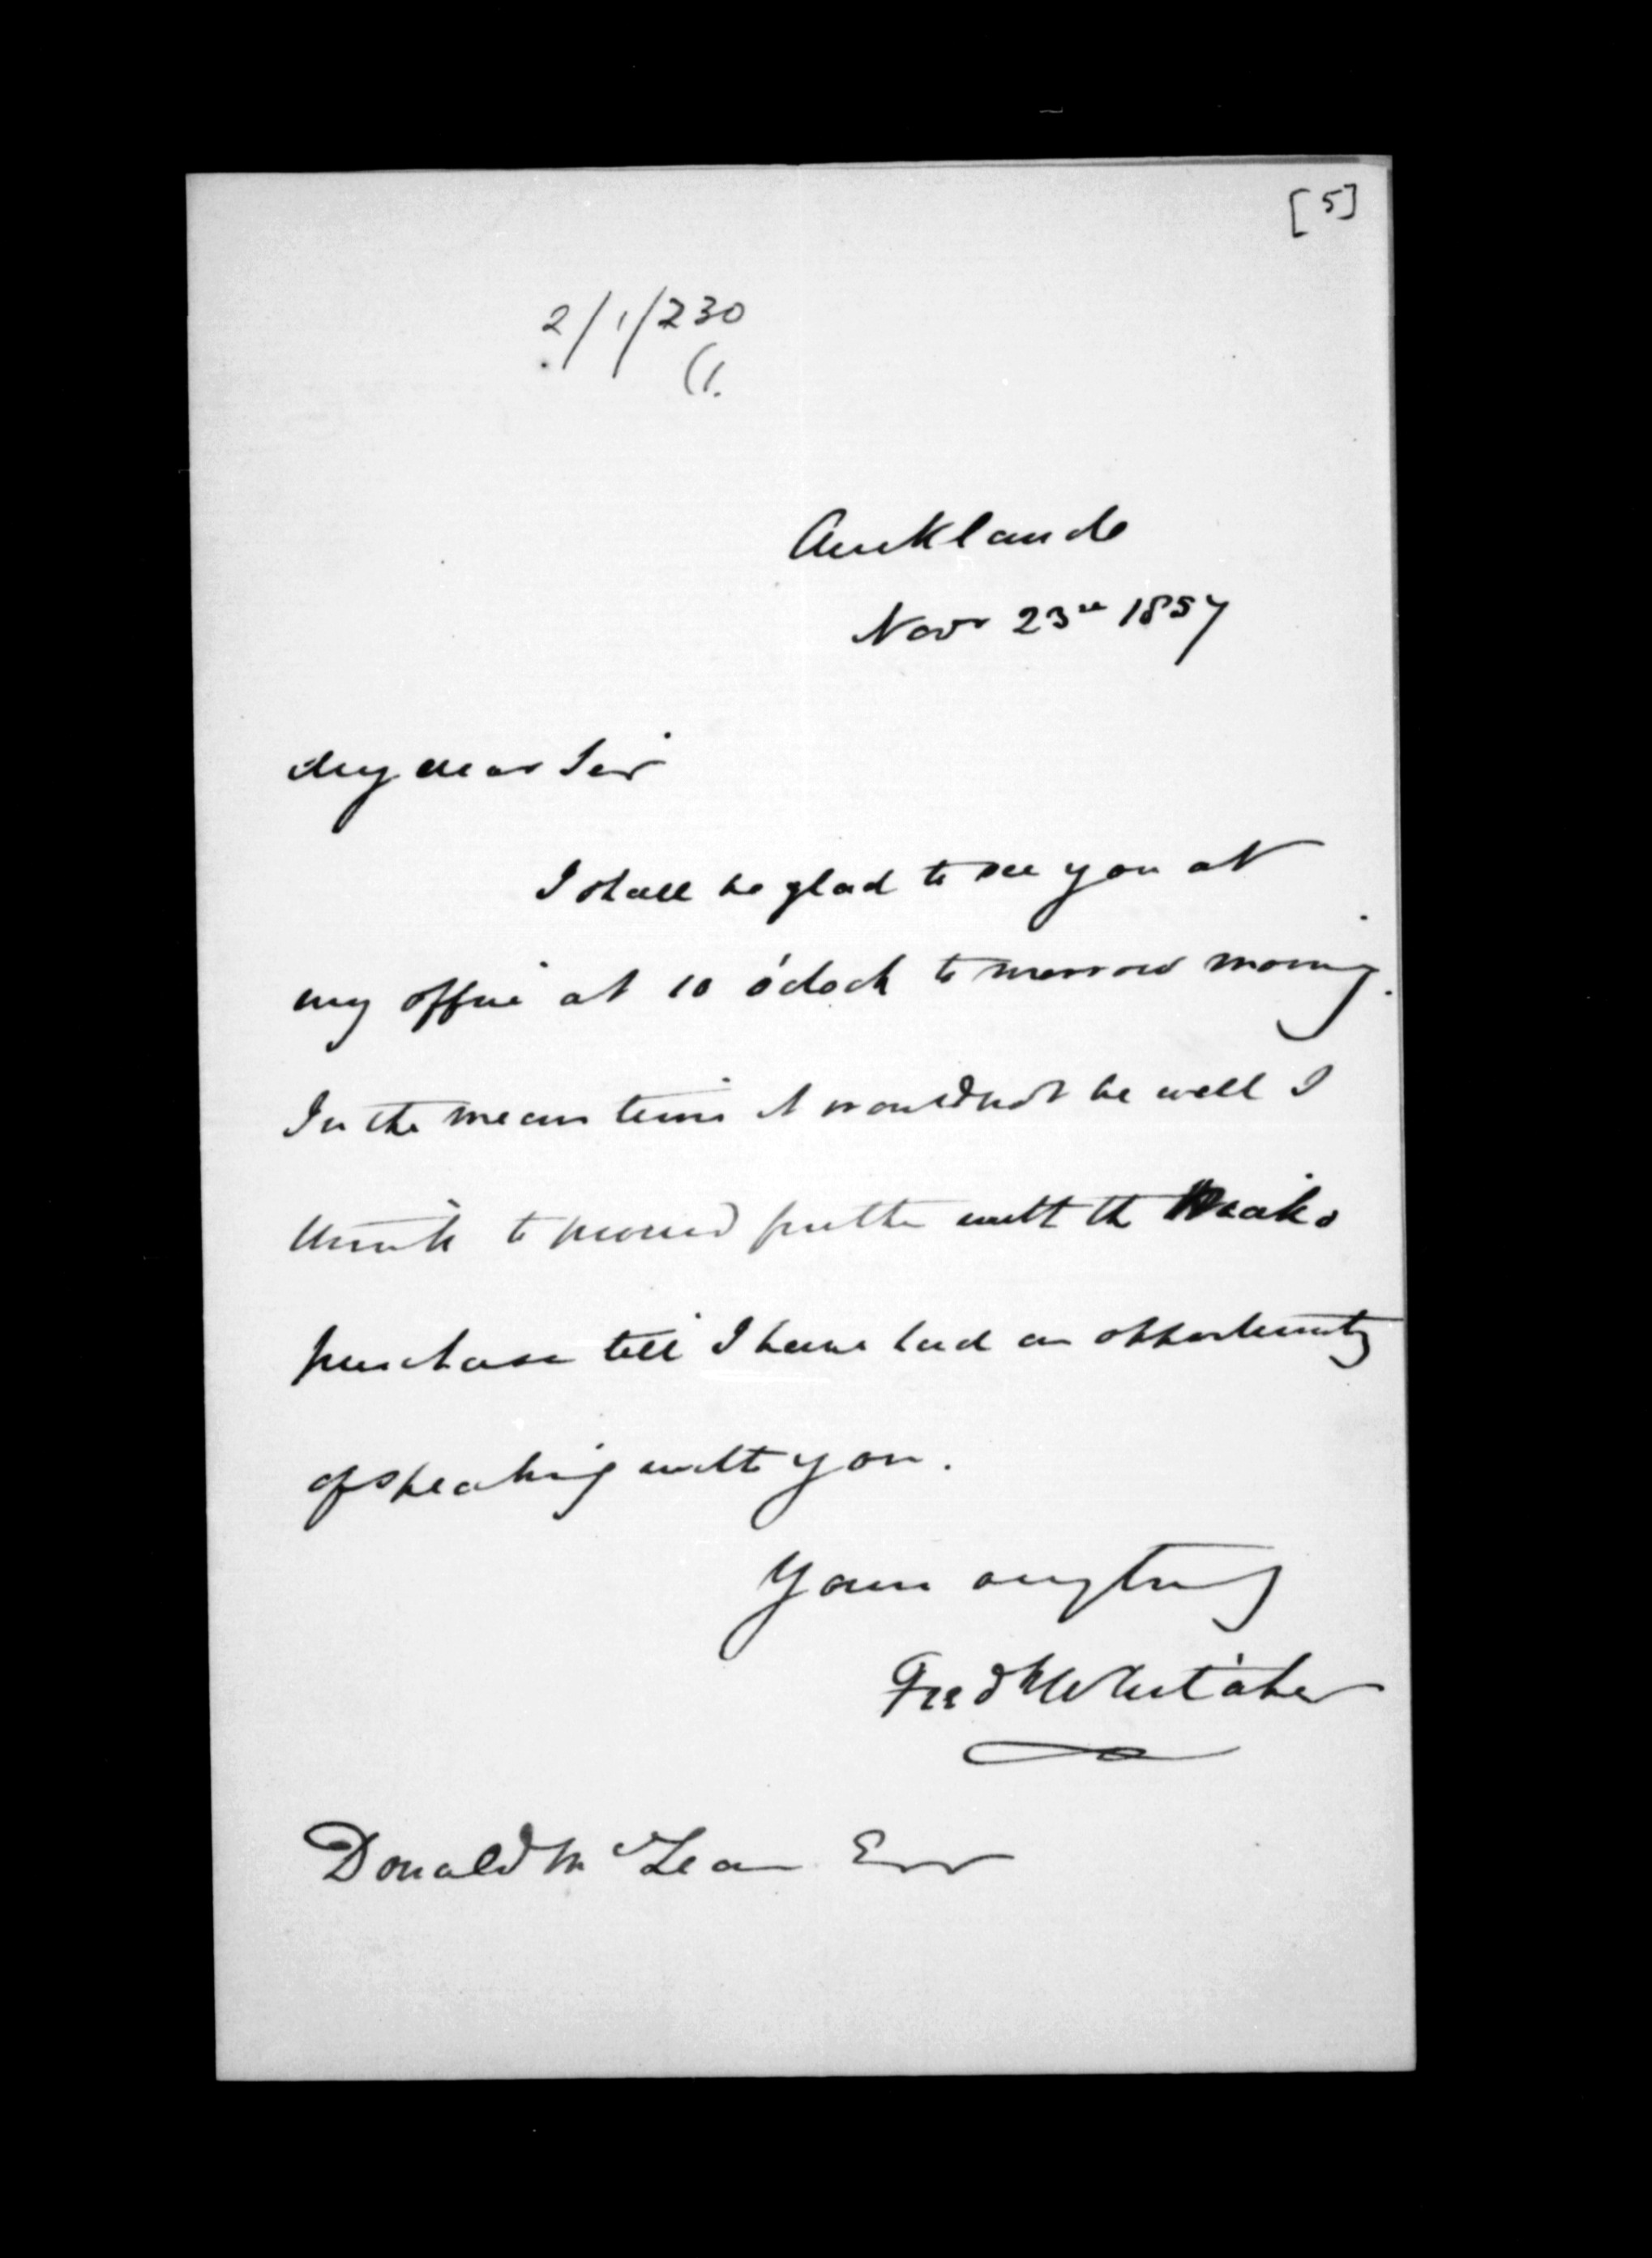 [5]
2/1/230
(1.
Auckland
Novr 23rd 1857
My dear Sir
I shall be glad to see you at
my office at 10 o'clock to morrow morning.
In the mean time it would not be well I
think to proceed further with the
purchase till I have had an opportunity
of speaking with you.
Yours very truly
Fredk Whitaker
Donald McLean Esqr